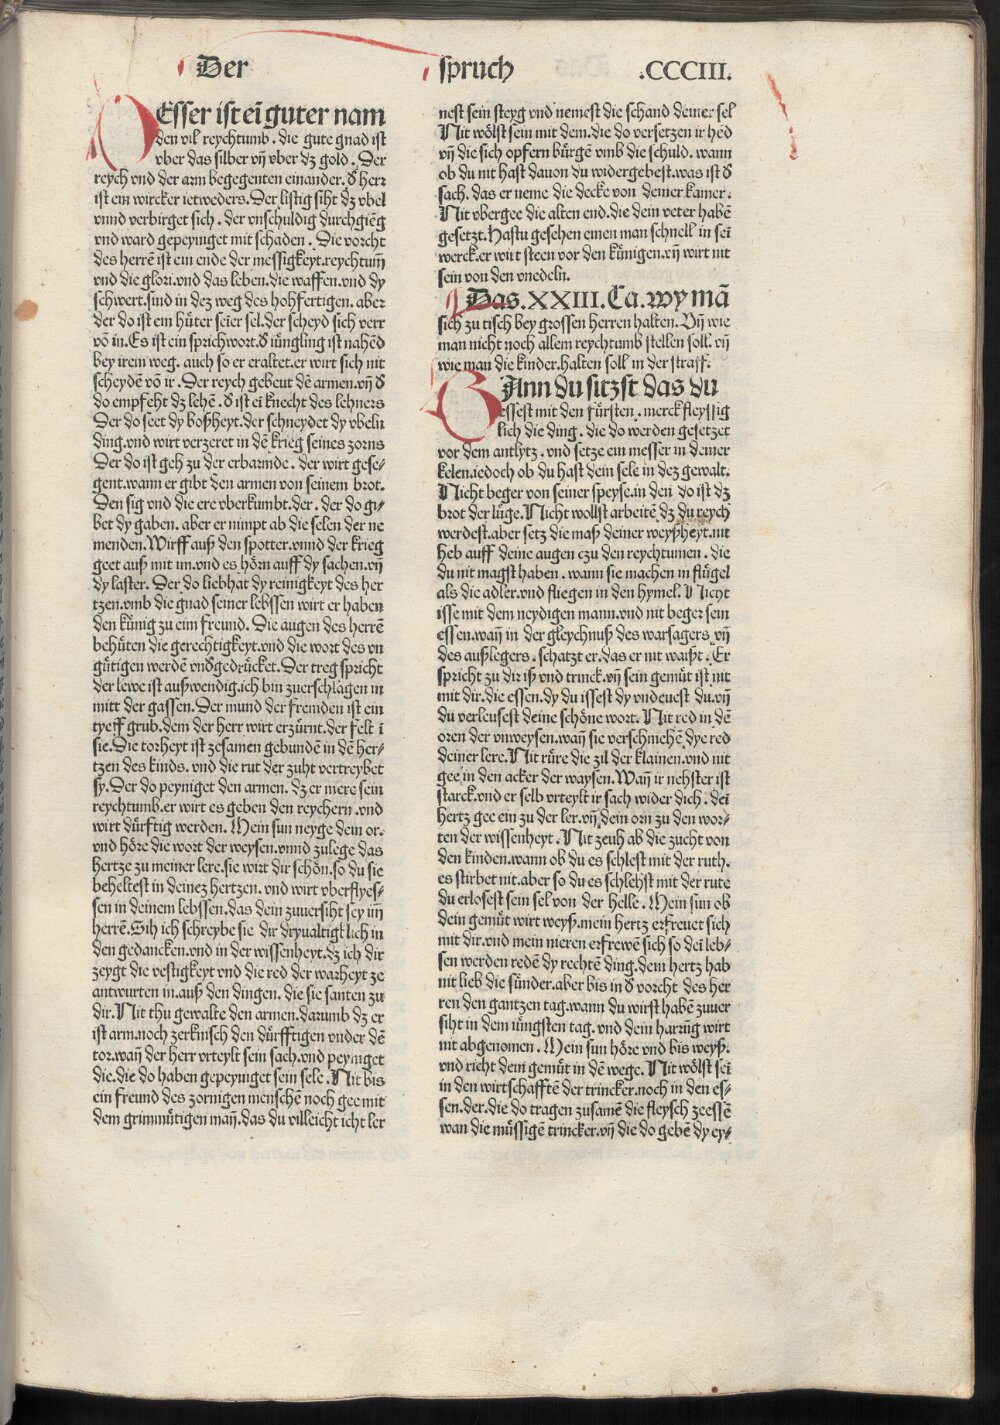 Der spruch .CCCIII.
Esser ist eī guter nam
den vil reychtumb. die gute gnad ist
vber das silber vn̄ vber dz gold. Der
reych vnd der arm begegenten einander. d̕ herr
ist ein wircker ietweders. Der listig siht dz vbel
vnnd verbirget sich. der vnschuldig durchgieng
vnd ward gepeyniget mit schaden. Die vorcht
des herrē ist ein ende der messigkeyt. reychtum̄
vnd die glori. vnd das leben. die waffen. vnd dy
schwert. sind in dez weg des hohfertigen. aber
der do ist ein hüter seīer sel. der scheyd sich verr
vō in. Es ist ein sprichwort. d̕ iüngling ist nahēd
bey irem weg. auch so er eraltet. er wirt sich nit
scheydē vō ir. Der reych gebeut dē armen. vn̄ d̕
do empfeht dz lehē. d̕ ist eī knecht des lehners
Der do seet dy boßheyt. der schneydet dy vbeln
ding. vnd wirt verzeret in dē krieg seines zorns
Der do ist geh zu der erbarmde. der wirt gese-
gent. wann er gibt den armen von seinem brot.
Den sig vnd die ere vberkumbt. der. der do gi-
bet dy gaben. aber er nimpt ab die selen der ne
menden. Wirff auß den spotter. vnnd der krieg
geet auß mit im. vnd es hörn auff dy sachen. vn̄
dy laster. Der do liebhat dy reinigkeyt des her
tzen. vmb die gnad seiner lebssen wirt er haben
den künig zu eim freund. Die augen des herrē
behüten die gerechtigkeyt. vnd die wort des vn
gütigen werdē vnd̕gedrücket. Der treg spricht
der lewe ist außwendig. ich bin zuerschlagen in
mitt der gassen. Der mund der fremden ist ein
tyeff grub. dem der herr wirt erzürnt. der felt ī
sie. Die torheyt ist zesamen gebundē in dē her-
tzen des kinds. vnd die rut der zuht vertreybet
sy. Der do peyniget den armen. dz er mere sein
reychtumb. er wirt es geben den reychern. vnd
wirt dürftig werden. Mein sun neyge dein or.
vnd höre die wort der weysen. vnnd zulege das
hertze zu meiner lere. sie wirt dir schön. so du sie
beheltest in deinez hertzen. vnd wirt vberflyes-
sen in deinem lebssen. das dein zuuersiht sey im̄
herrē. Sih ich schreybe sie dir dryualtigklich in
den gedancken. vnd in der wissenheyt. dz ich dir
zeygt die vestigkeyt vnd die red der warheyt ze
antwurten in. auß den dingen. die sie santen zu
dir. Nit thu gewalte den armen. darumb dz er
ist arm. noch zerknisch den dürfftigen vnder dē
tor. wan̄ der herr vrteylt sein sach. vnd peyniget
die. die do haben gepeyniget sein sele. Nit bis
ein freund des zornigen menschē noch gee mit
dem grimmütigen man̄. das du villeicht icht ler
nest sein steyg vnd nemest die schand deiner sel
Nit wölst sein mit dem. die do versetzen ir hēd
vn̄ die sich opfern bürgē vmb die schuld. wann
ob du nit hast dauon du widergebest. was ist d̕
sach. das er neme die decke von deiner kamer.
Nit vbergee die alten end. die dein veter habē
gesetzt. Hastu gesehen einen man schnell in seī
werck. er wirt steen vor den künigen. vn̄ wirt nit
sein von den vnedeln.
Das. XXIII. Ca. wy mā
sich zu tisch bey grossen herren halten. Vn̄ wie
man nicht noch allem reychtumb stellen soll. vn̄
wie man die kinder halten soll in der straff.
Ann du sitzst das du
essest mit den fürsten. merck fleyssig
lich die ding. die do werden gesetzet
vor dem antlytz. vnd setze ein messer in deiner
kelen. iedoch ob du hast dein sele in dez gewalt.
Nicht beger von seiner speyse. in den do ist dz
brot der lüge. Nicht wollst arbeitē dz du reych
werdest. aber setz die maß deiner weyßheyt. nit
heb auff deine augen czu den reychtumen. die
du nit magst haben. wann sie machen in flügel
als die adler. vnd fliegen in den hymel. Nicht
isse mit dem neydigen mann. vnd nit beger sein
essen. wan̄ in der gleychnuß des warsagers vn̄
des außlegers. schatzt er. das er nit waißt. Er
spricht zu dir iß vnd trinck. vn̄ sein gemüt ist nit
mit dir. die essen. dy du issest dy vndeuest du. vn̄
du verleusest deine schöne wort. Nit red in dē
oren der vnweysen. wan̄ sie verschmehē dye red
deiner lere. Nit rüre die zil der klainen. vnd nit
gee in den acker der waysen. Wan̄ ir nehster ist
starck. vnd er selb vrteylt ir sach wider dich. deī
hertz gee ein zu der ler. vn̄ dein orn zu den wor-
ten der wissenheyt. Nit zeuh ab die zucht von
den kinden. wann ob du es schlest mit der ruth.
es stirbet nit. aber so du es schlehst mit der rute
du erlosest sein sel von der helle. Mein sun ob
dein gemüt wirt weyß. mein hertz erfreuet sich
mit dir. vnd mein nieren erfrewē sich so deī leb-
sen werden redē dy rechtē ding. dem hertz hab
nit lieb die sünder. aber bis in d̕ vorcht des her
ren den gantzen tag. wann du wirst habē zuuer
siht in dem iüngsten tag. vnd dein harrūg wirt
nit abgenomen. Mein sun höre vnd bis weyß.
vnd richt dem gemüt in dē wege. Nit wölst seī
in den wirtschafftē der trincker. noch in den es-
sen. der. die do tragen zusamē die fleysch zeessē
wan die müssigē trincker. vn̄ die do gebē dy ey-